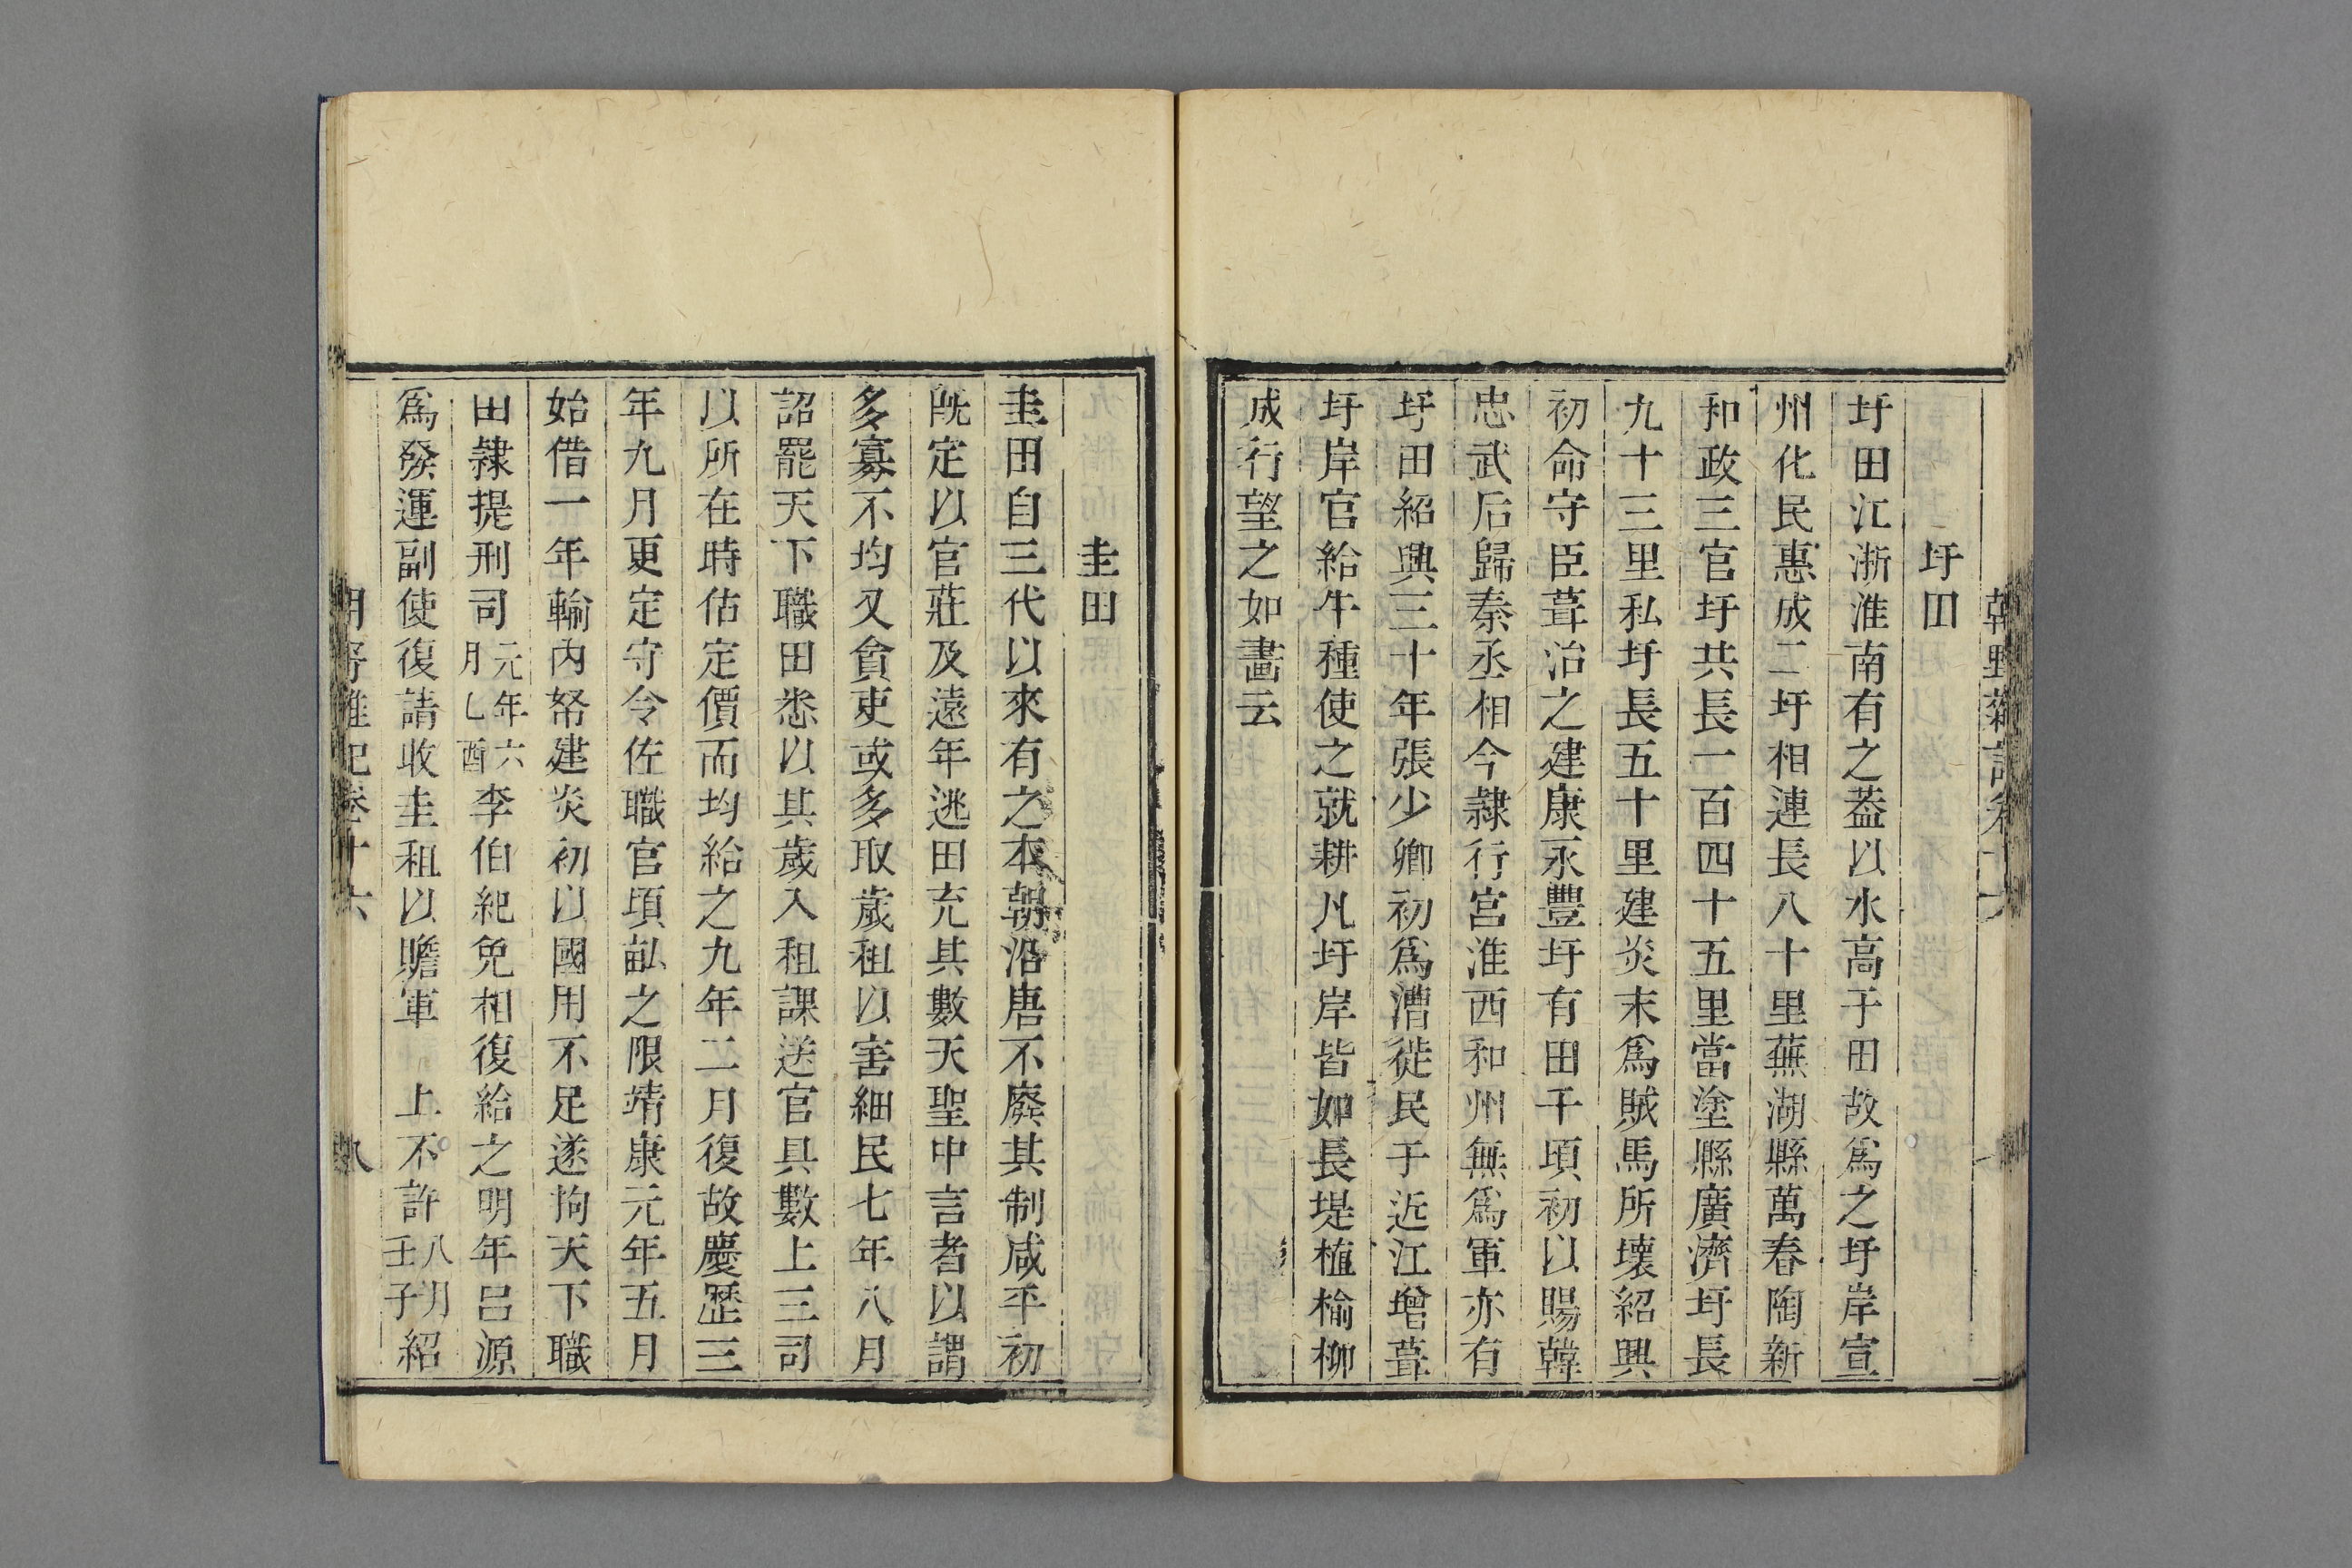 圩田
圩田江浙淮南有之葢以水高于田故爲之圩岸宣
州化民惠成二圩相連長八十里蕪湖縣萬春陶新
和政三官圩共長一百四十五里當塗縣廣濟圩長
九十三里私圩長五十里建炎末爲賊馬所壞紹興
初命守臣葺治之建康永豐圩有田千頃初以賜韓
忠武后歸秦丞相今隷行宮淮西和州無爲軍亦有
圩田紹興三十年張少卿初爲漕徙民于近江增葺
圩岸官給牛種使之就耕凡圩岸皆如長堤植榆柳
成行望之如畵云
圭田
圭田自三代以來有之本朝沿唐不廢其制咸平初
旣定以官莊及遠年逃田充其數天聖中言者以謂
多寡不均又貪吏或多取歲租以害細民七年八月
詔罷天下職田悉以其歲入租課送官具數上三司
以所在時估定價而均給之九年二月復故慶歷三
年九月更定守令佐職官頃畝之限靖康元年五月
始借一年輸內帑建炎初以國用不足遂拘天下職
田隷提刑司元年六月乙酉李伯紀免相復給之明年呂源
爲發運副使復請收圭租以贍軍 上不許八月壬子紹
朝野雜記卷十六